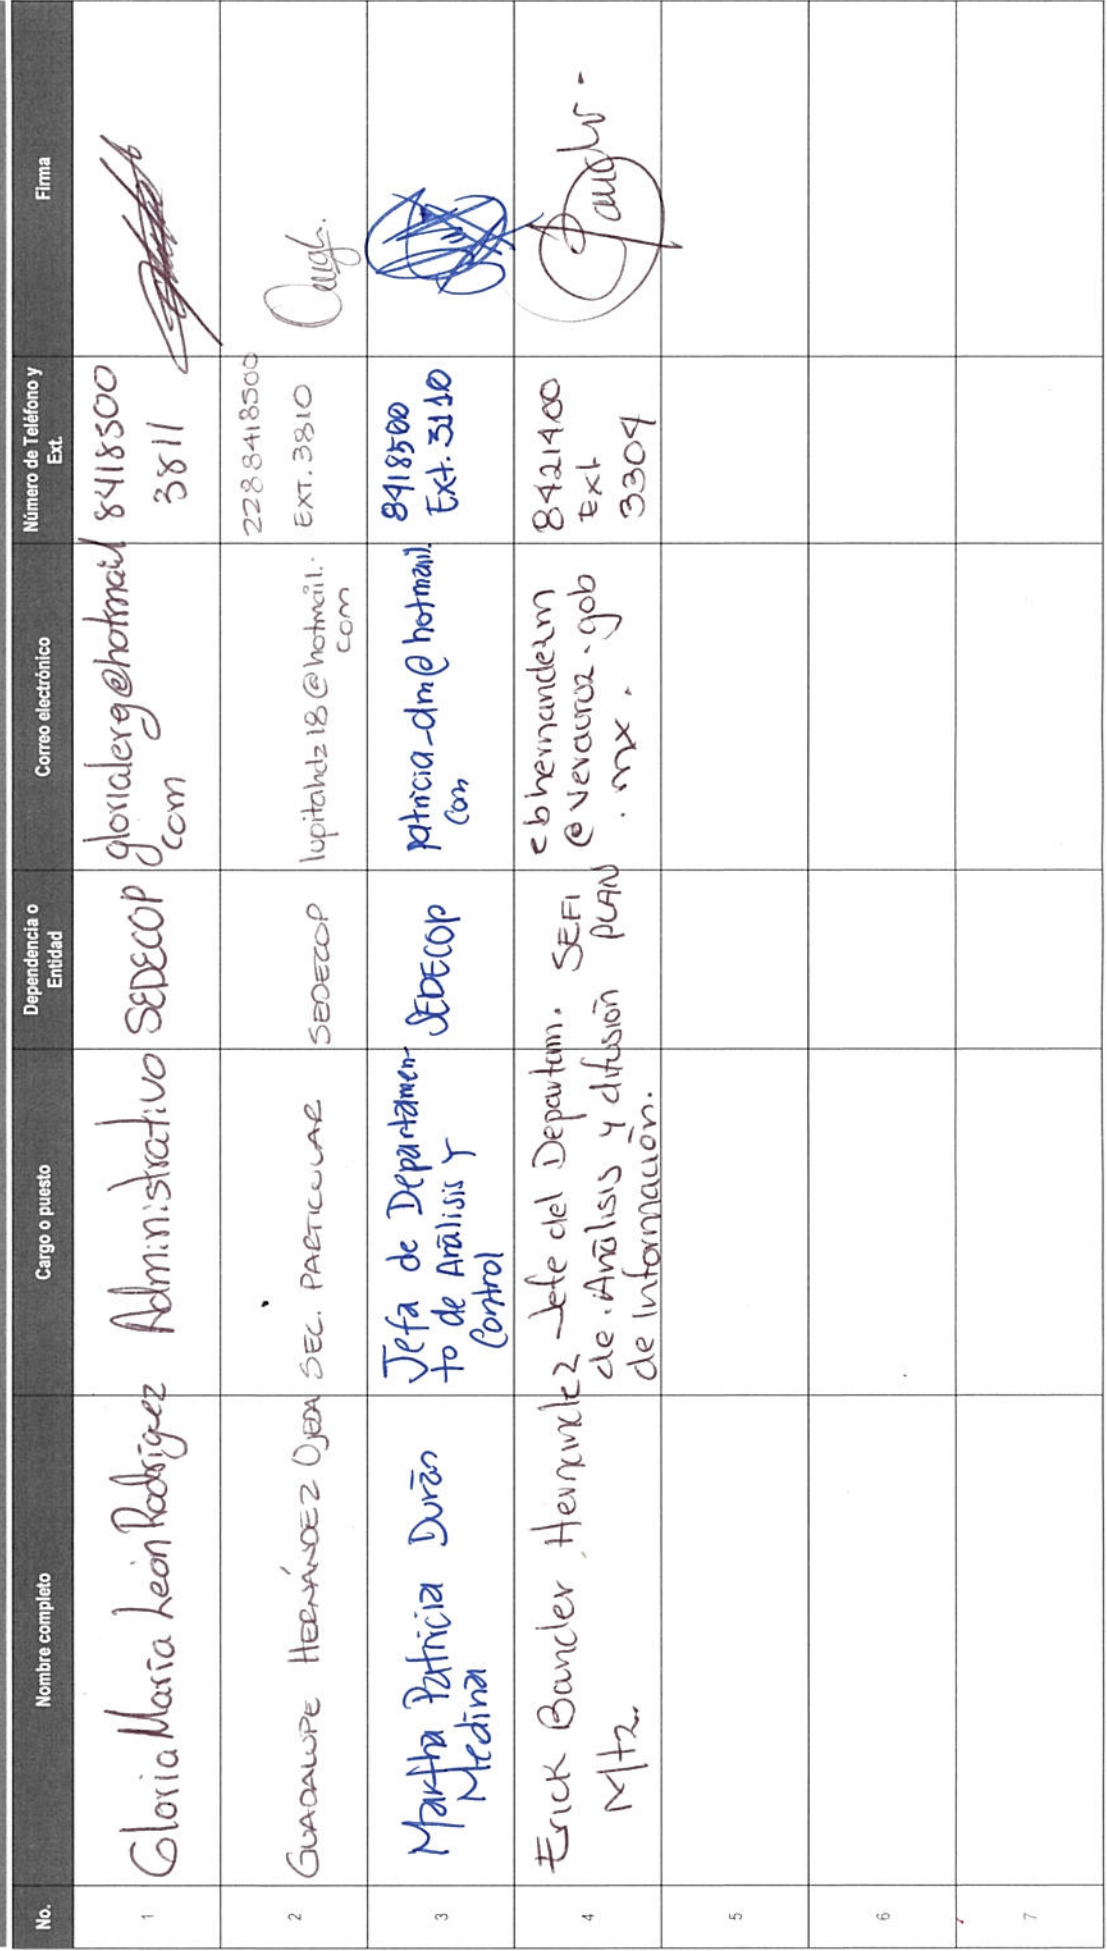 No.
Nombre completo
Cargo o puesto
Dependencia o
Entidad
Correo electrónico
Número de Teléfono y
Ext.
Firma
1
Gloria María León Rodríguez
Administrativo
SEDECOP
glorialerg@hotmail
com
8418500
3811
2
GUADALUPE HERNÁNDEZ OJEDA
SEC. PARTICULAR
SEDECOP
lupitahdz18@hotmail.
com
2288418500
EXT. 3810
3
Martha Patricia Durán
Medina
Jefa de Departamen-
to de Análisis y
Control
SEDECOP
patricia_dm@hotmail.
com
8418500
Ext. 3110
4
Erick Bander Hernández
Mtz.
Jefe del Departam.
de Análisis y difusión
de Información.
SEFI
PLAN
ebhernandezm
@veracruz.gob
.mx.
8421400
Ext
3304
5
6
7